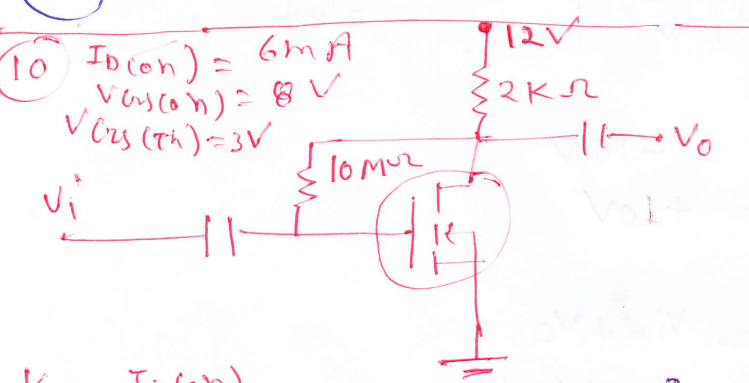 10 ID(on) = 6mA
VGS(on) = 8 V
VGS(Th) = 3V
12V
2KΩ
10MΩ
Vi
Vo
ID(on)